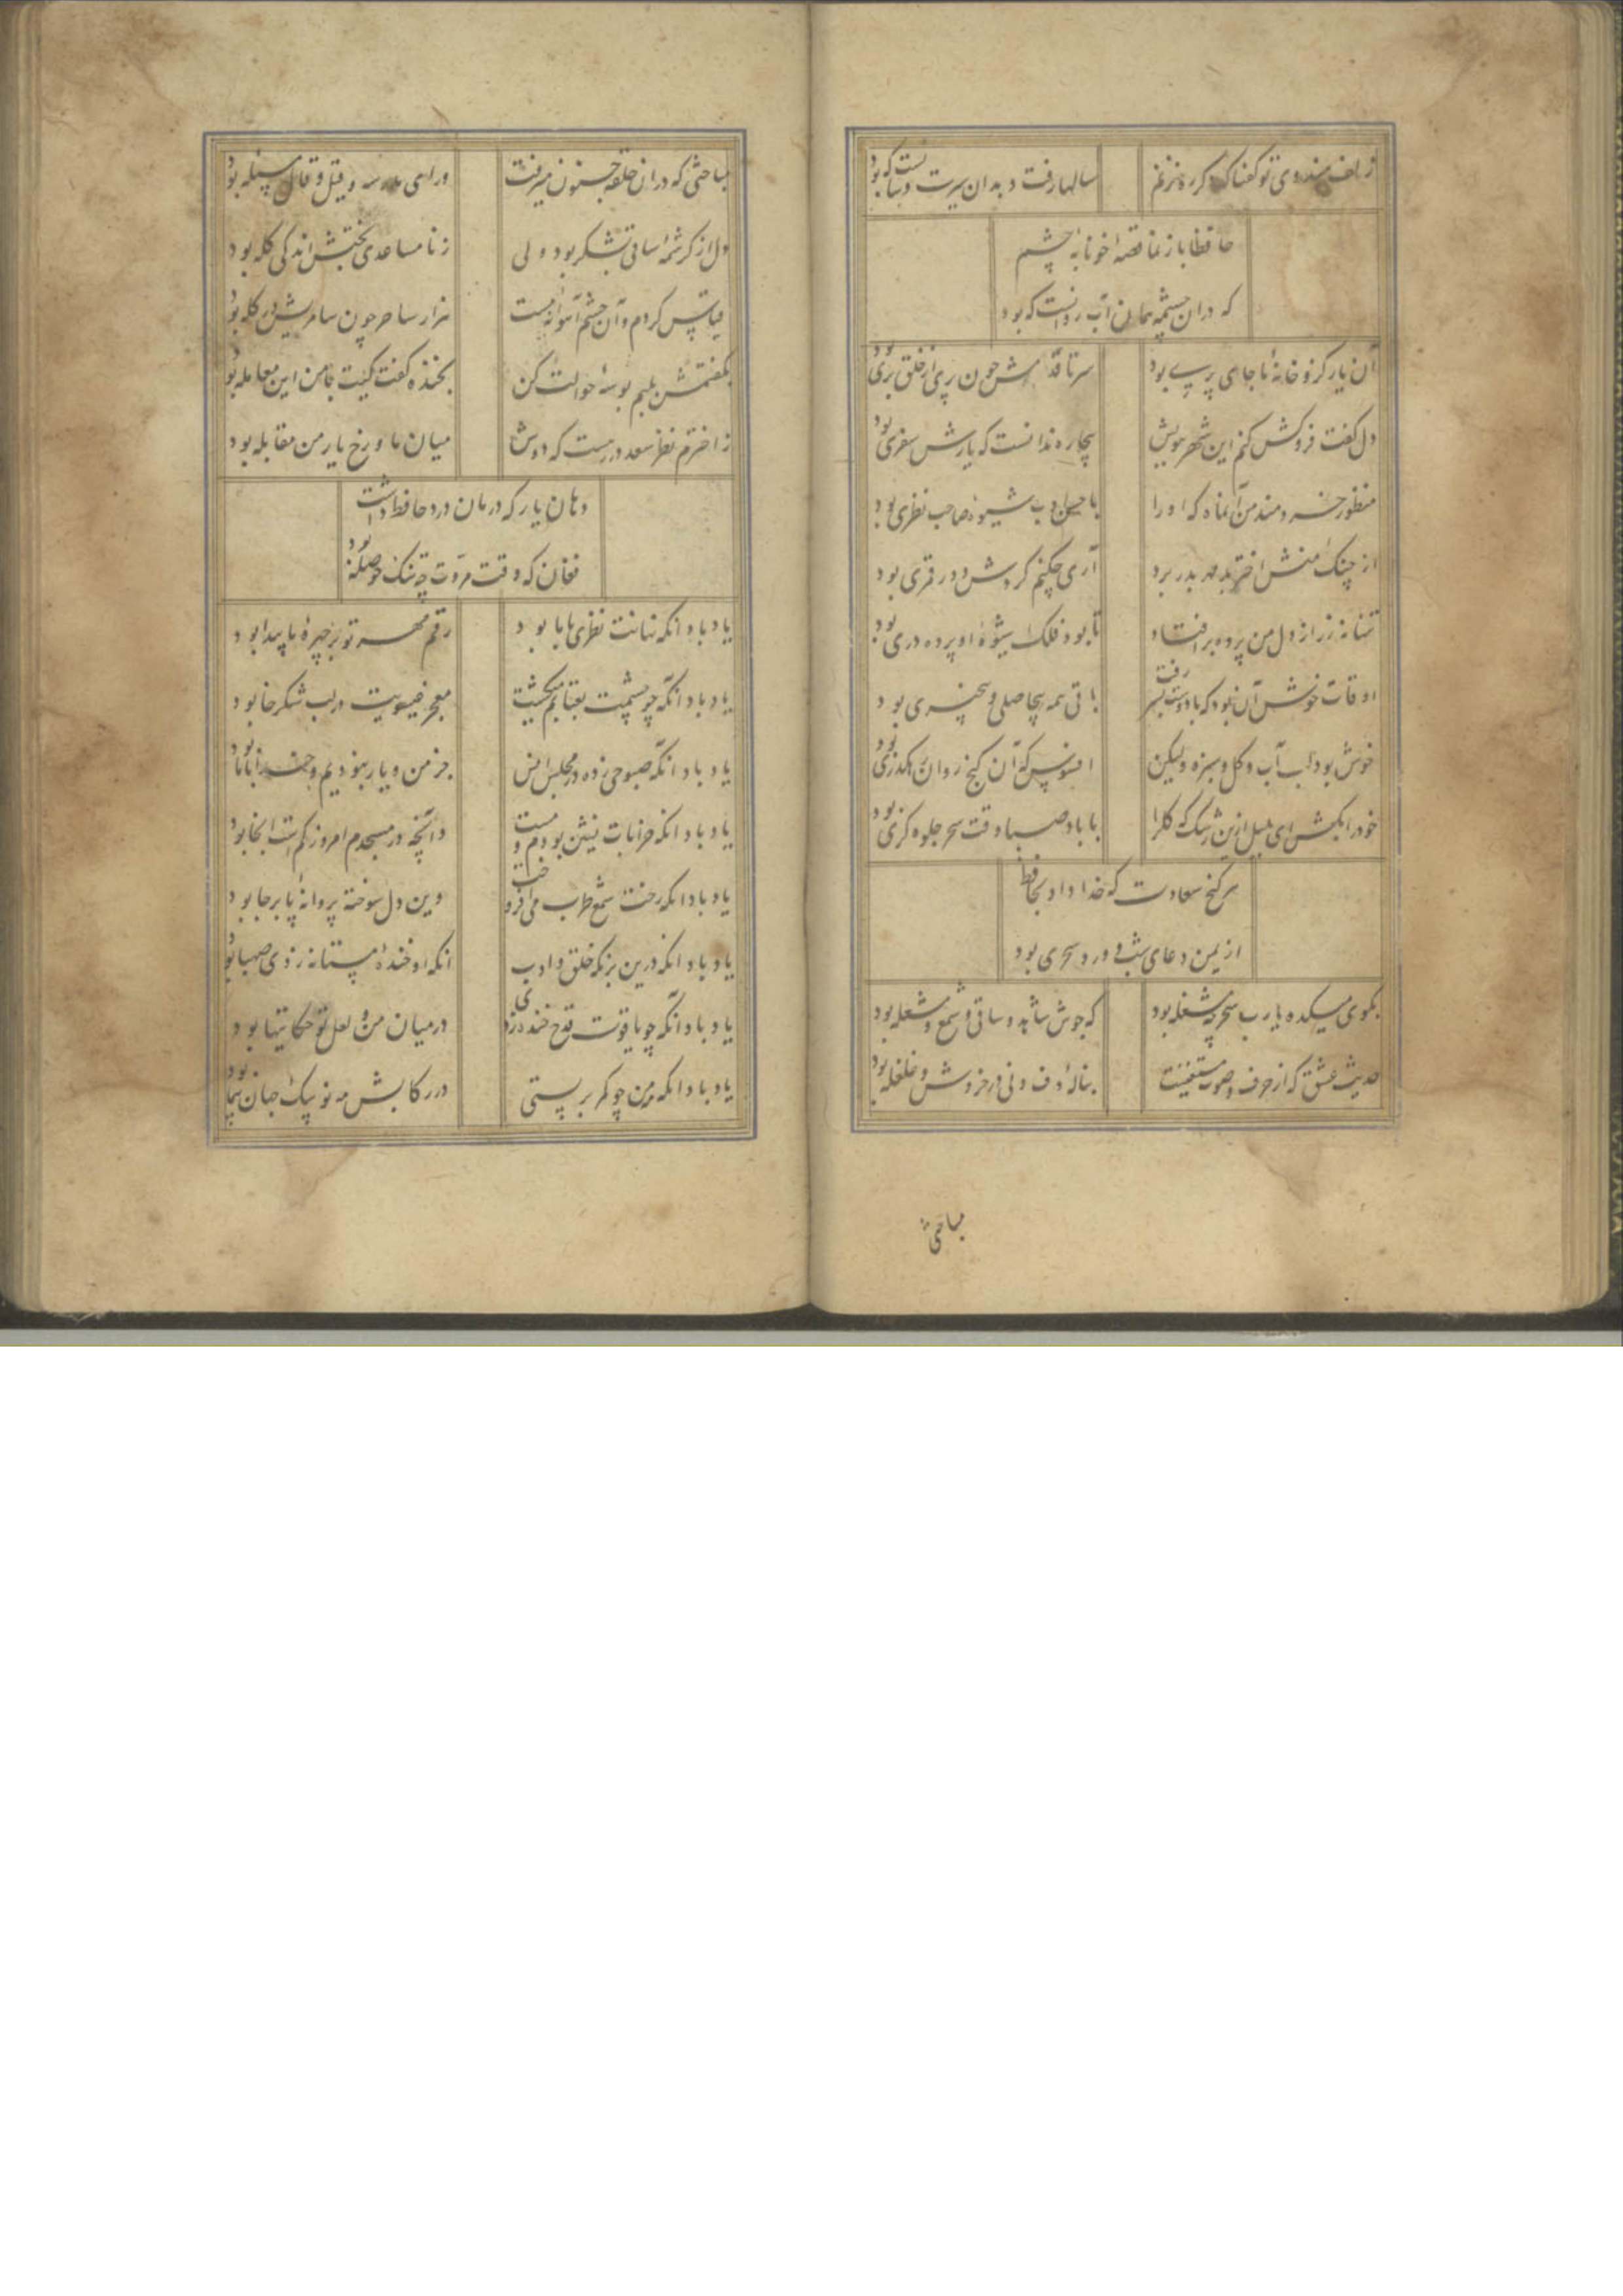 زلف هندوی تو گفتا که دگر ره نزنم سالها رفت و بدان سیرت و سانست که بود
حافظا باز نما قصهٔ خونابهٔ چشم
که در ان چشمه همان آب روانست که بود
آن یار کزو خانهٔ ما جای پری بود سر تا قدمش چون پری از خلق بری بود
دل گفت فروکش کنم این شهر ببویش بیچاره ندانست که یارش سفری بود
منظور خردمند من آنماه که او را با حسن ادب شیوهٔ صاحب نظری بود
از چنگ منش اختر بد مهر بدر برد آری چکنم گردش دور قمری بود
تنها نه ز راز دل من پرده برافتاد تا بود فلک شیوهٔ او پرده دری بود
اوقات خوش آن بود که با دوست بسر رفت باقی همه بیحاصلی و بیخبری بود
خوش بود لب آب و گل و سبزه ولیکن افسوس که آن گنج روان رهگذری بود
خود را بکش ای بلبل ازین رشک که گل را با باد صبا وقت سحر جلوه گری بود
هر گنج سعادت که خدا داد بحافظ
از یمن دعای شب و ورد سحری بود
بکوی میکده یارب سحر چه مشغله بود که جوش شاهد و ساقی و شمع و مشعله بود
حدیث عشق که از حرف و صوت مستغنیست بنالهٔ دف و نی در خروش و غلغله بود
مباحثی
مباحثی که در ان حلقه جنون میرفت ورای مدرسه و قیل و قال مسئله بود
دل از کرشمهٔ ساقی بشکر بود ولی ز نا مساعدی بختش اندکی گله بود
قیاس کردم و آن چشم آهوانه مست هزار ساحر چون سامریش در گله بود
بگفتمش بلبم بوسهٔ حوالت کن بخنده گفت کیت با من این معامله بود
ز اخترم نظر سعد در رهست که دوش میان ماه و رخ یار من مقابله بود
دهان یار که درمان درد حافظ داشت
فغان که وقت مروت چه تنگ حوصله بود
یاد باد انکه نهانت نظری با ما بود رقم مهر تو بر چهرهٔ ما پیدا بود
یاد باد انکه چو چشمت بعتابم میکشت معجز عیسویت در لب شکر خا بود
یاد باد انکه صبوحی زده در مجلس انس جز من و یار نبودیم و خدا با ما بود
یاد باد انکه خرابات نشین بودم و مست وانچه در مسجدم امروز کمست انجا بود
یاد باد انکه رخت شمع طرب می افروخت وین دل سوخته پروانهٔ پا برجا بود
یاد باد انکه درین بزمگه خلق و ادب انکه او خندهٔ مستانه زدی صهبا بود
یاد باد انکه چو یاقوت قدح خنده زدی در میان من و لعل تو حکایتها بود
یاد باد انکه مه من چو کمر بر بستی در رکابش مه نو پیک جهان پیما بود